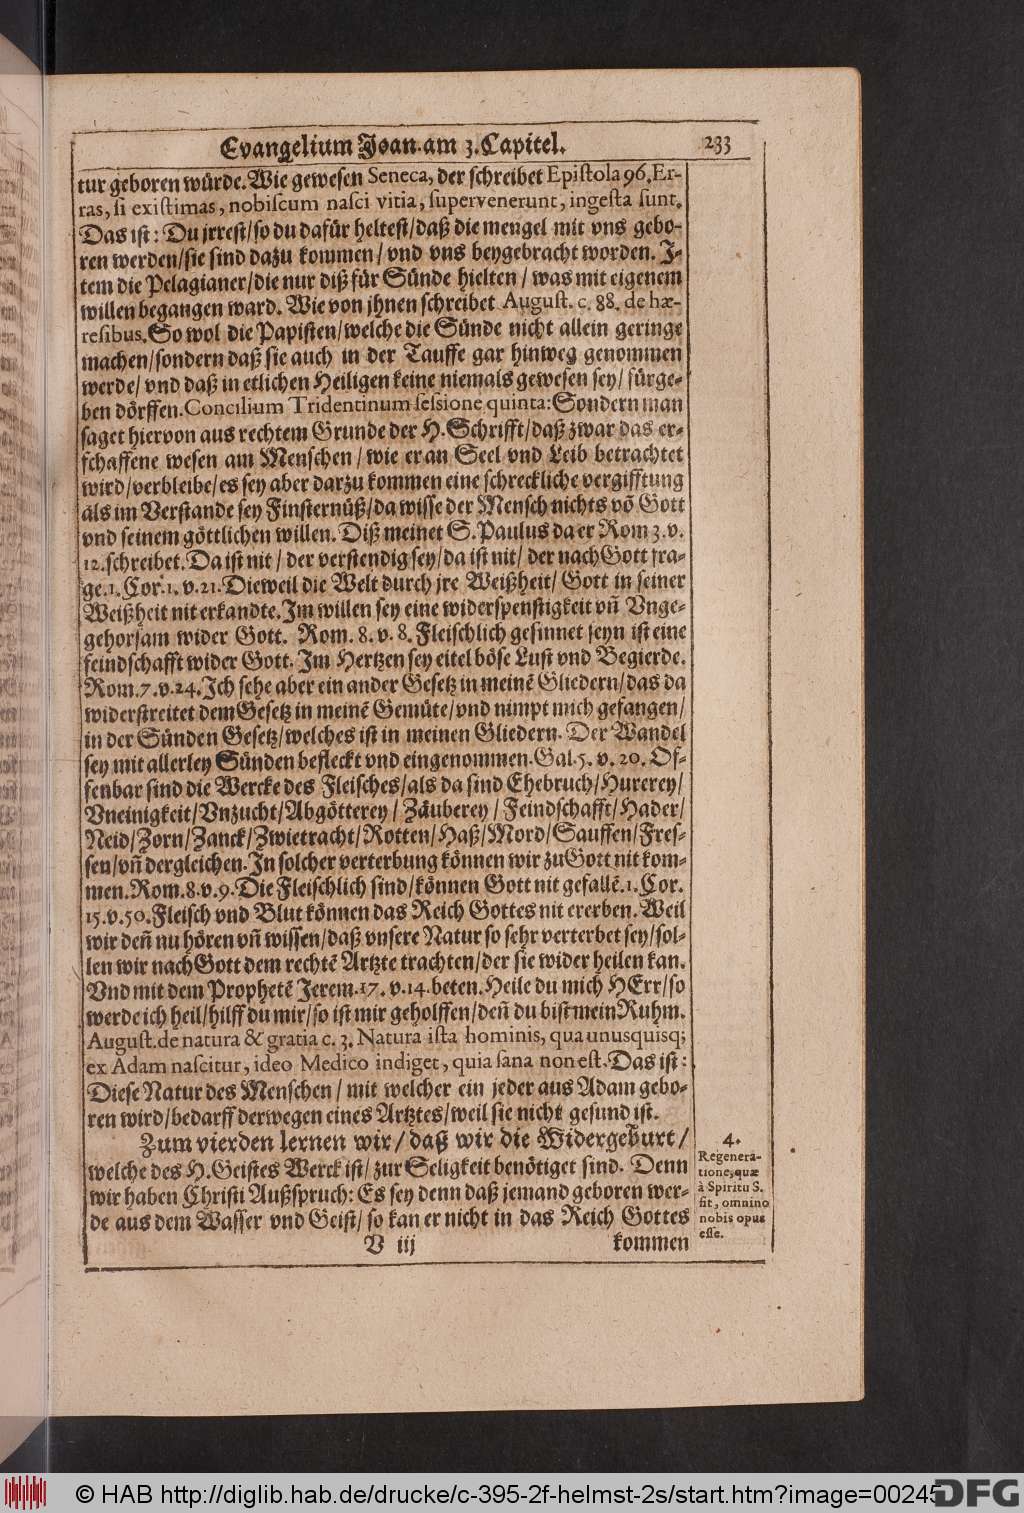 Evangelium Joan. am 3. Capitel. 233
tur geboren würde. Wie gewesen Seneca, der schreibet Epistola 96. Er-
ras, si existimas, nobiscum nasci vitia, supervenerunt, ingesta sunt.
Das ist: Du jrrest/so du dafür heltest/daß die mengel mit vns gebo-
ren werden/sie sind dazu kommen/vnd vns beygebracht worden. J-
tem die Pelagianer/die nur diß für Sünde hielten/was mit eigenem
willen begangen ward. Wie von jhnen schreibet August. c. 88. de hæ-
resibus. So wol die Papisten/welche die Sünde nicht allein geringe
machen/sondern daß sie auch in der Tauffe gar hinweg genommen
werde/vnd daß in etlichen Heiligen keine niemals gewesen sey/fürge-
ben dörffen. Concilium Tridentinum sessione quinta: Sondern man
saget hiervon aus rechtem Grunde der H. Schrifft/daß zwar das er-
schaffene wesen am Menschen/wie er an Seel vnd Leib betrachtet
wird/verbleibe/es sey aber darzu kommen eine schreckliche vergifftung
als im Verstande sey Finsternüß/da wisse der Mensch nichts võ Gott
vnd seinem göttlichen willen. Diß meinet S. Paulus da er Rom 3. v.
12. schreibet. Da ist nit/der verstendig sey/da ist nit/der nach Gott fra-
ge. 1. Cor. 1. v. 21. Dieweil die Welt durch jre Weißheit/Gott in seiner
Weißheit nit erkandte. Im willen sey eine widerspenstigkeit vñ Vnge-
gehorsam wider Gott. Rom. 8. v. 8. Fleischlich gesinnet seyn ist eine
feindschafft wider Gott. Im Hertzen sey eitel böse Lust vnd Begierde.
Rom. 7. v. 24. Ich sehe aber ein ander Gesetz in meinẽ Gliedern/das da
widerstreitet dem Gesetz in meinẽ Gemüte/vnd nimpt mich gefangen/
in der Sünden Gesetz/welches ist in meinen Gliedern. Der Wandel
sey mit allerley Sünden befleckt vnd eingenommen. Gal. 5. v. 20. Of-
fenbar sind die Wercke des Fleisches/als da sind Ehebruch/Hurerey/
Vneinigkeit/Vnzucht/Abgötterey/Zäuberey/Feindschafft/Hader/
Neid/Zorn/Zanck/Zwietracht/Rotten/Haß/Mord/Sauffen/Fres-
sen/vñ dergleichen. In solcher verterbung können wir zu Gott nit kom-
men. Rom. 8. v. 9. Die Fleischlich sind/können Gott nit gefallẽ. 1. Cor.
15. v. 50. Fleisch vnd Blut können das Reich Gottes nit ererben. Weil
wir deñ nu hören vñ wissen/daß vnsere Natur so sehr verterbet sey/sol-
len wir nach Gott dem rechtẽ Artzte trachten/der sie wider heilen kan.
Vnd mit dem Prophetẽ Jerem. 17. v. 14. beten. Heile du mich HErr/so
werde ich heil/hilff du mir/so ist mir geholffen/deñ du bist mein Ruhm.
August. de natura & gratia c. 3. Natura ista hominis, qua unusquisq;
ex Adam nascitur, ideo Medico indiget, quia sana non est. Das ist:
Diese Natur des Menschen/mit welcher ein jeder aus Adam gebo-
ren wird/bedarff derwegen eines Artztes/weil sie nicht gesund ist.
Zum vierden lernen wir/daß wir die Widergeburt/
welche des H. Geistes Werck ist/zur Seligkeit benötiget sind. Denn
wir haben Christi Außspruch: Es sey denn daß jemand geboren wer-
de aus dem Wasser vnd Geist/so kan er nicht in das Reich Gottes
V iij kommen
4.
Regenera-
tione, quæ
à Spiritu S.
fit, omnino
nobis opus
esse.
© HAB http://diglib.hab.de/drucke/c-395-2f-helmst-2s/start.htm?image=00245
DFG